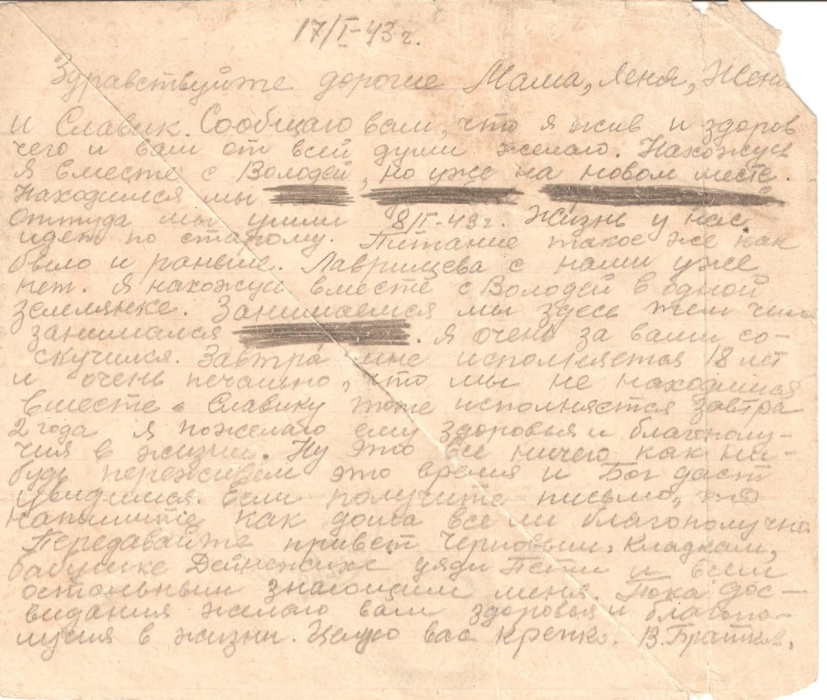 17/I-43 г.
Здравствуйте дорогие Мама, Леня, Женя
и Славик. Сообщаю вам, что я жив и здоров
чего и вам от всей души желаю. Нахожусь
Я вместе с Володей, но уже на новом месте.
Находимся мы
оттуда мы ушли 8/I-43 г. Жизнь у нас
идет по старому. Питание такое же как
было и раньше. Лаврищева с нами уже
нет. Я нахожусь вместе с Володей в одной
землянке. Занимаемся мы здесь тем чем
занимался . Я очень за вами со-
скучился. Завтра мне исполняется 18 лет
и очень печально, что мы не находимся
вместе. Славику тоже исполняется завтра
2 года я пожелаю ему здоровья и благополу-
чия в жизни. Ну это все ничего как ни-
будь переживем это время и Бог даст
увидимся. Если получите письмо, то
напишите как дома все ли благополучно
Передавайте привет Черновым, Кладкам,
бабушке Дейнежихе дяди Пети и всем
остальным знающим меня. Пока дос-
видания желаю вам здоровья и благопо-
лучия в жизни. Целую вас крепко. В. Братков.